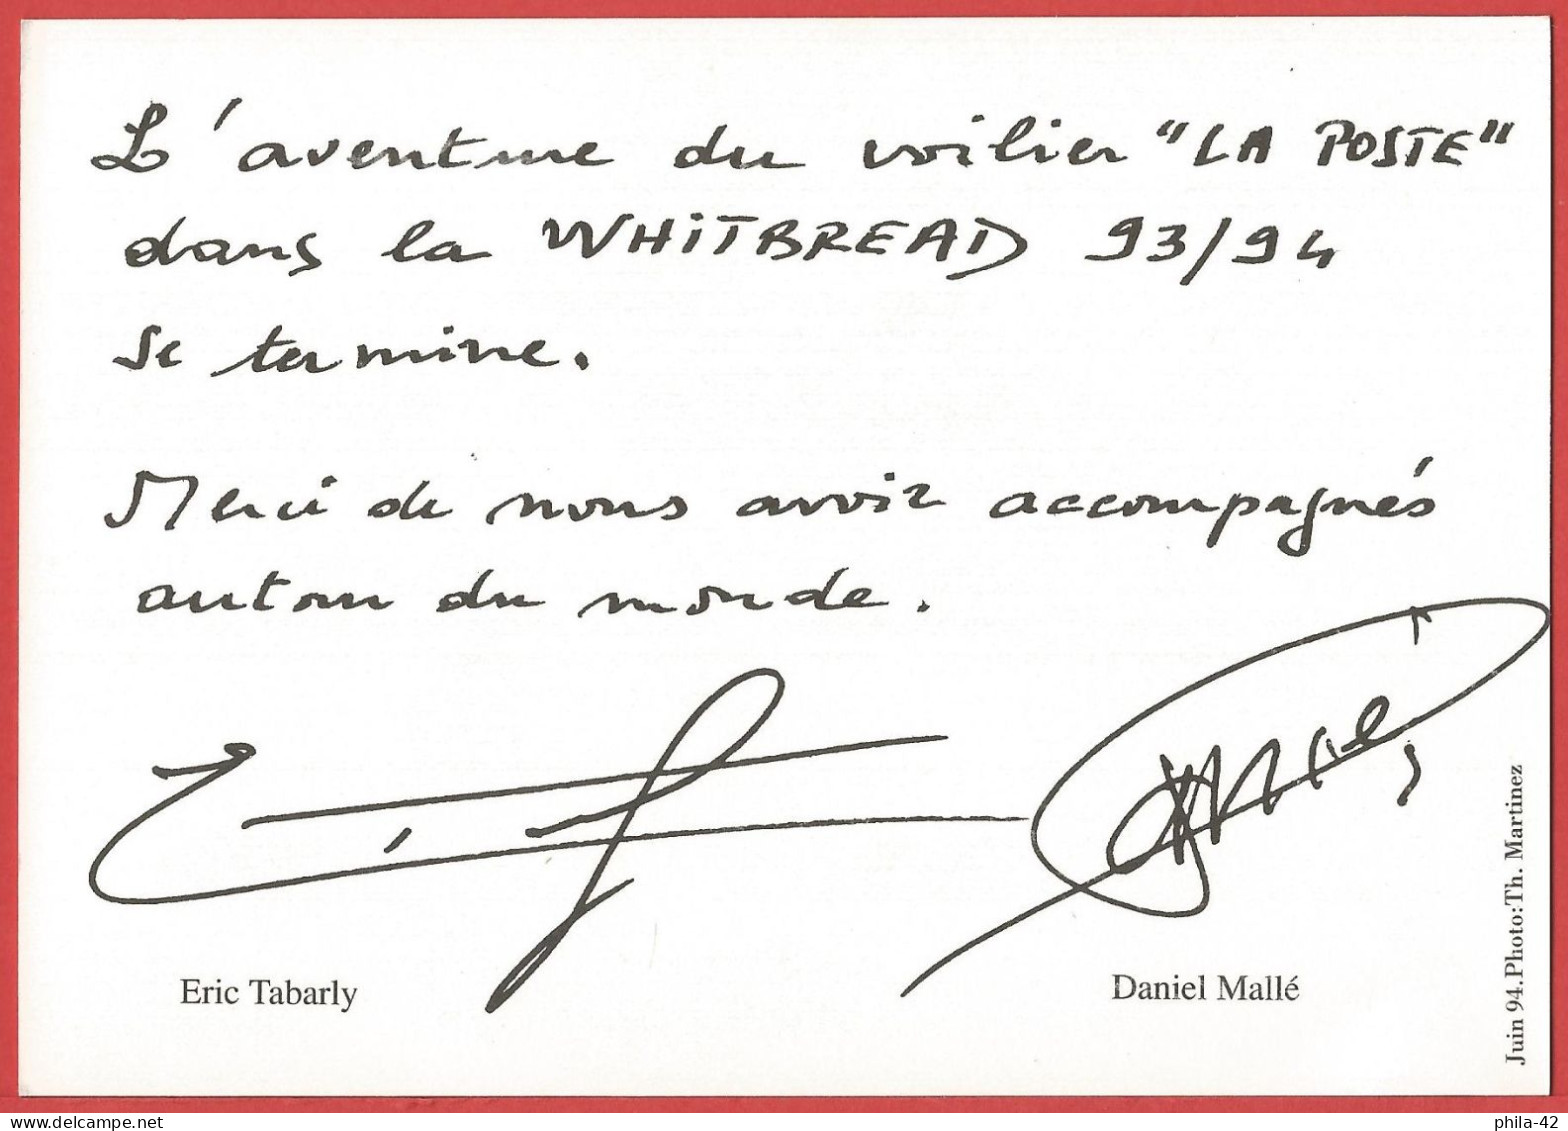 L'aventure du voilier "LA POSTE"
dans la WHITBREAD 93/94
se termine.
Merci de nous avoir accompagnés
autour du monde.
Eric Tabarly
Daniel Mallé
Juin 94.Photo:Th. Martinez
delcampe.net
phila-42